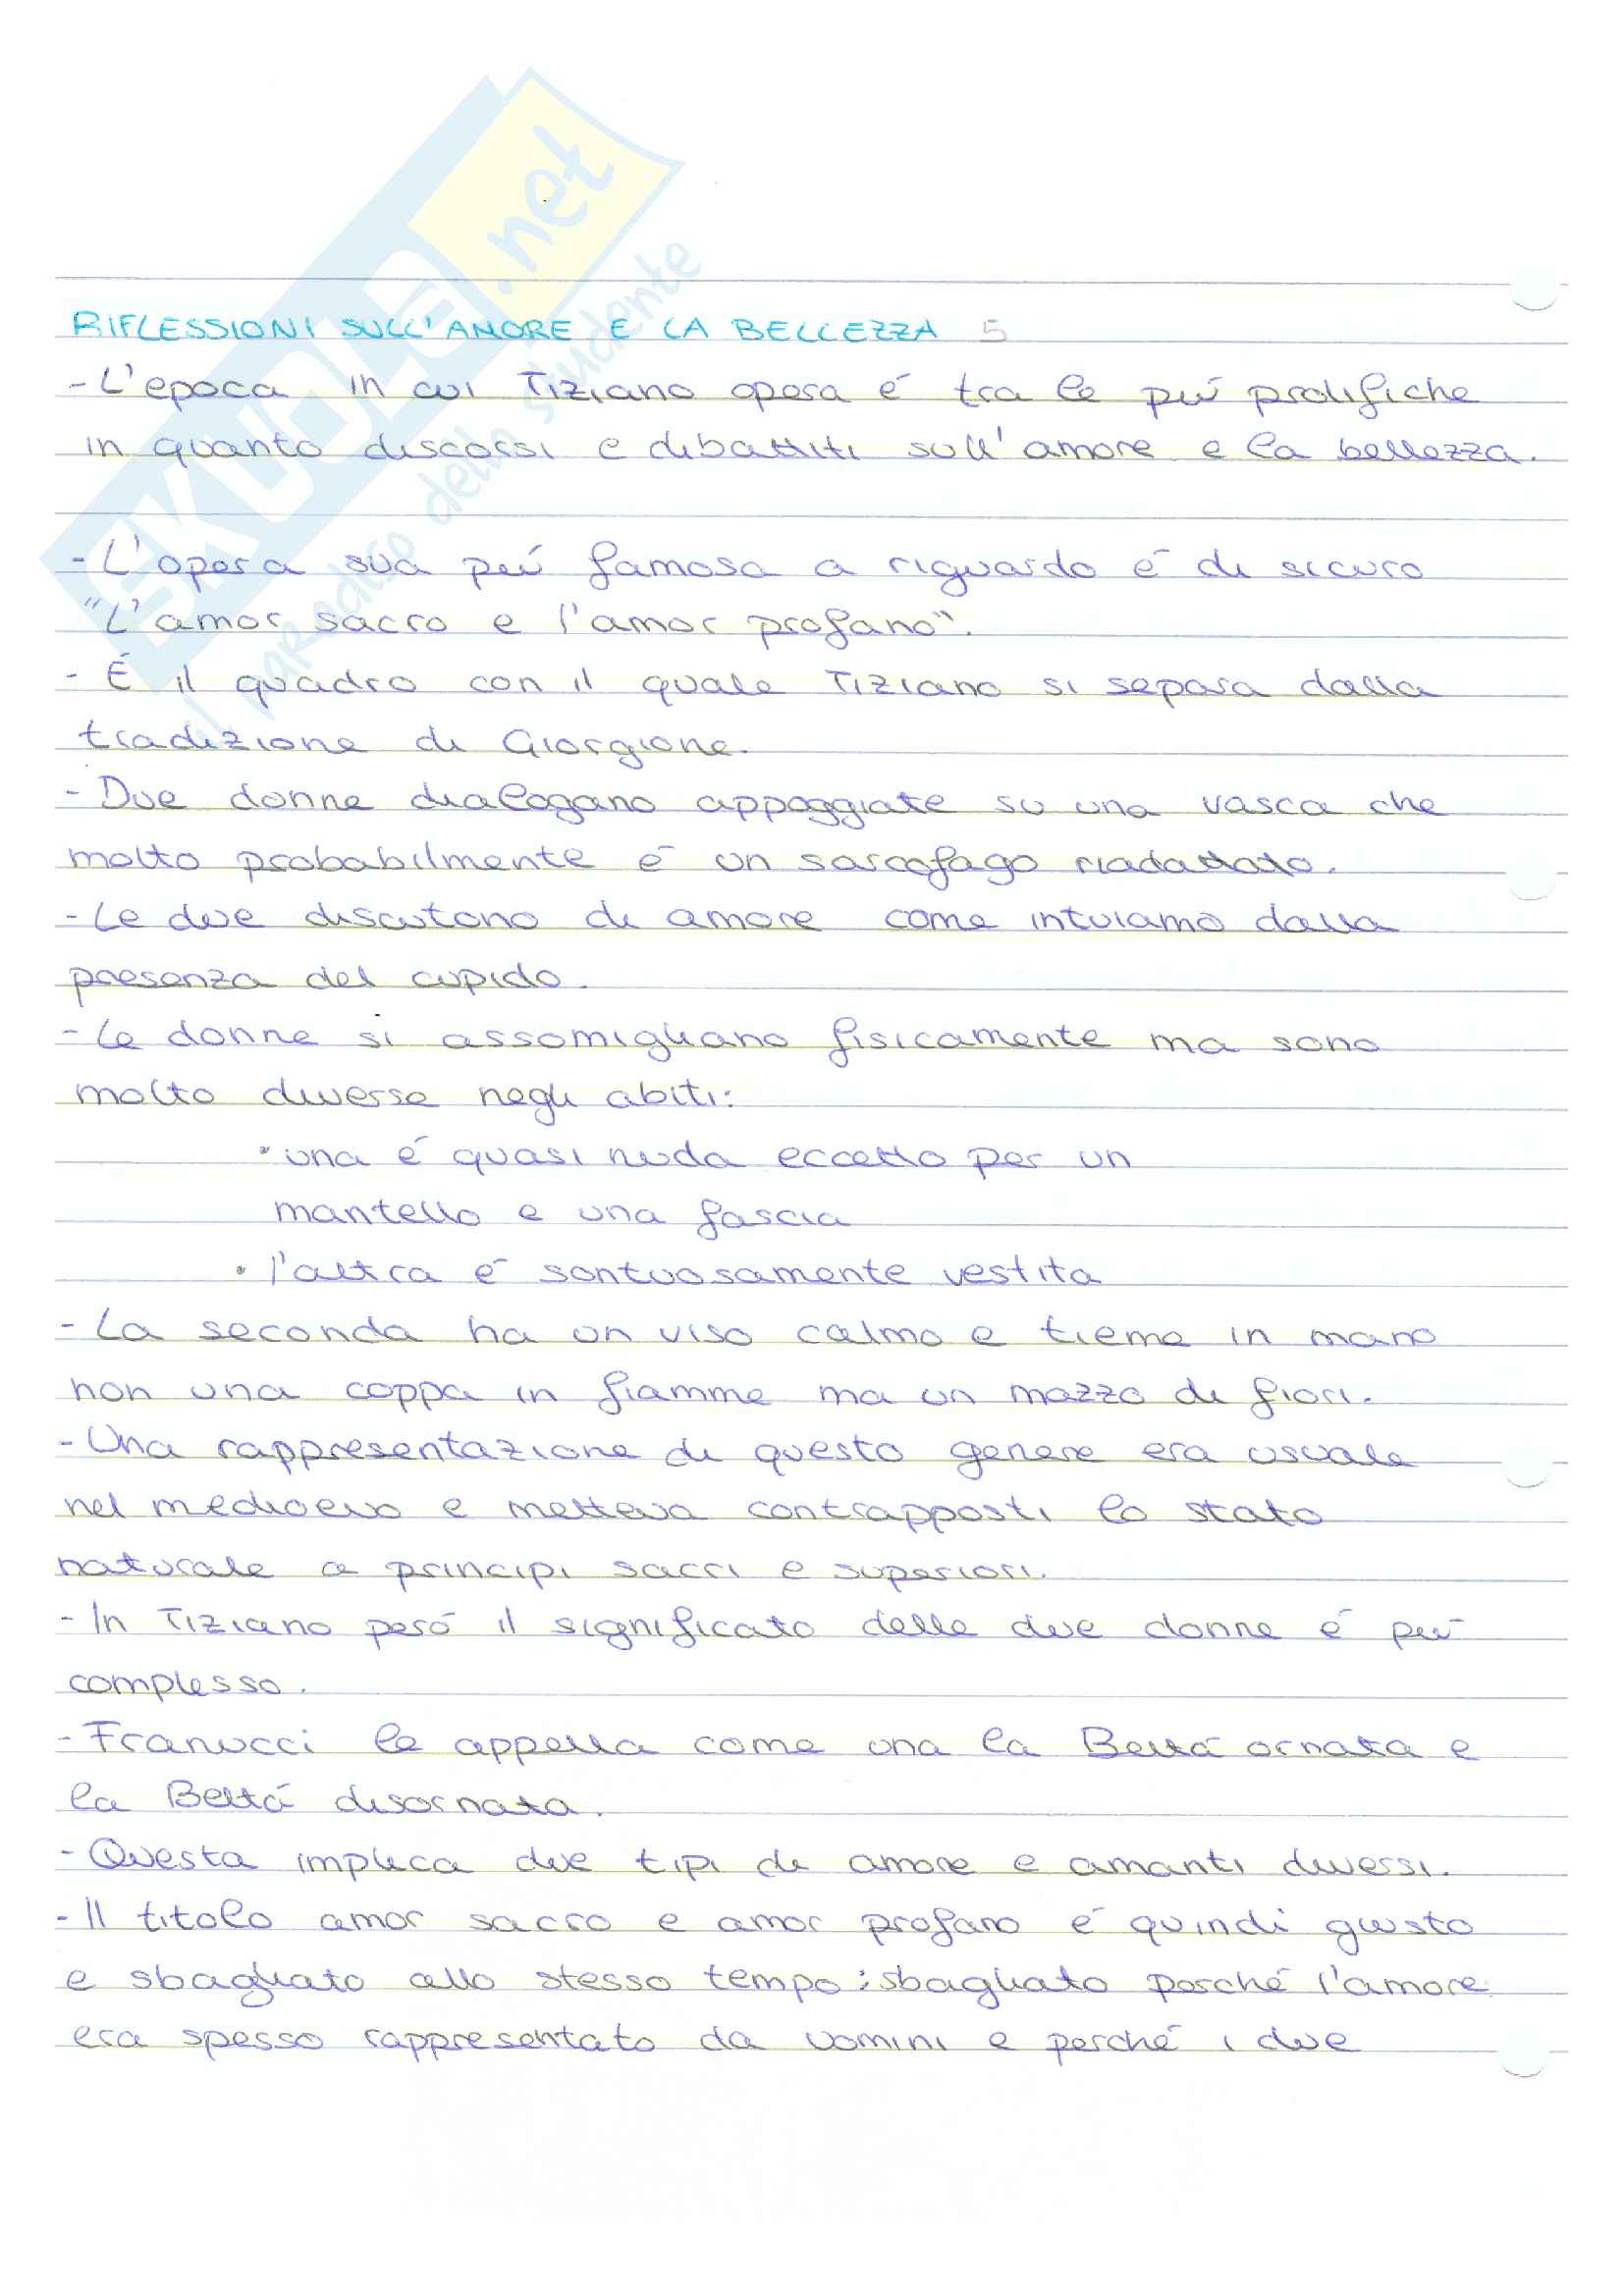 SKUOLA.net
il paradiso dello studente
RIFLESSIONI SULL'AMORE E LA BELLEZZA 5
- L'epoca in cui Tiziano opera é tra le piú prolifiche
in quanto discorsi e dibattiti sull'amore e la bellezza.
- L'opera sua piú famosa a riguardo é di sicuro
"L'amor sacro e l'amor profano".
- É il quadro con il quale Tiziano si separa dalla
tradizione di Giorgione.
- Due donne dialogano appoggiate su una vasca che
molto probabilmente é un sarcofago riadattato.
- Le due discutono di amore come intuiamo dalla
presenza del cupido.
- Le donne si assomigliano fisicamente ma sono
molto diverse negli abiti:
• una é quasi nuda eccetto per un
mantello e una fascia
• l'altra é sontuosamente vestita
- La seconda ha un viso calmo e tiene in mano
non una coppa in fiamme ma un mazzo di fiori.
- Una rappresentazione di questo genere era usuale
nel medioevo e metteva contrapposti lo stato
naturale a principi sacri e superiori.
- In Tiziano peró il significato delle due donne é piú
complesso.
- Franucci le appella come una la Beltá ornata e
la Beltá disornata.
- Questa implica due tipi di amore e amanti diversi.
- Il titolo amor sacro e amor profano é quindi giusto
e sbagliato allo stesso tempo: sbagliato perché l'amore
era spesso rappresentato da uomini e perché i due